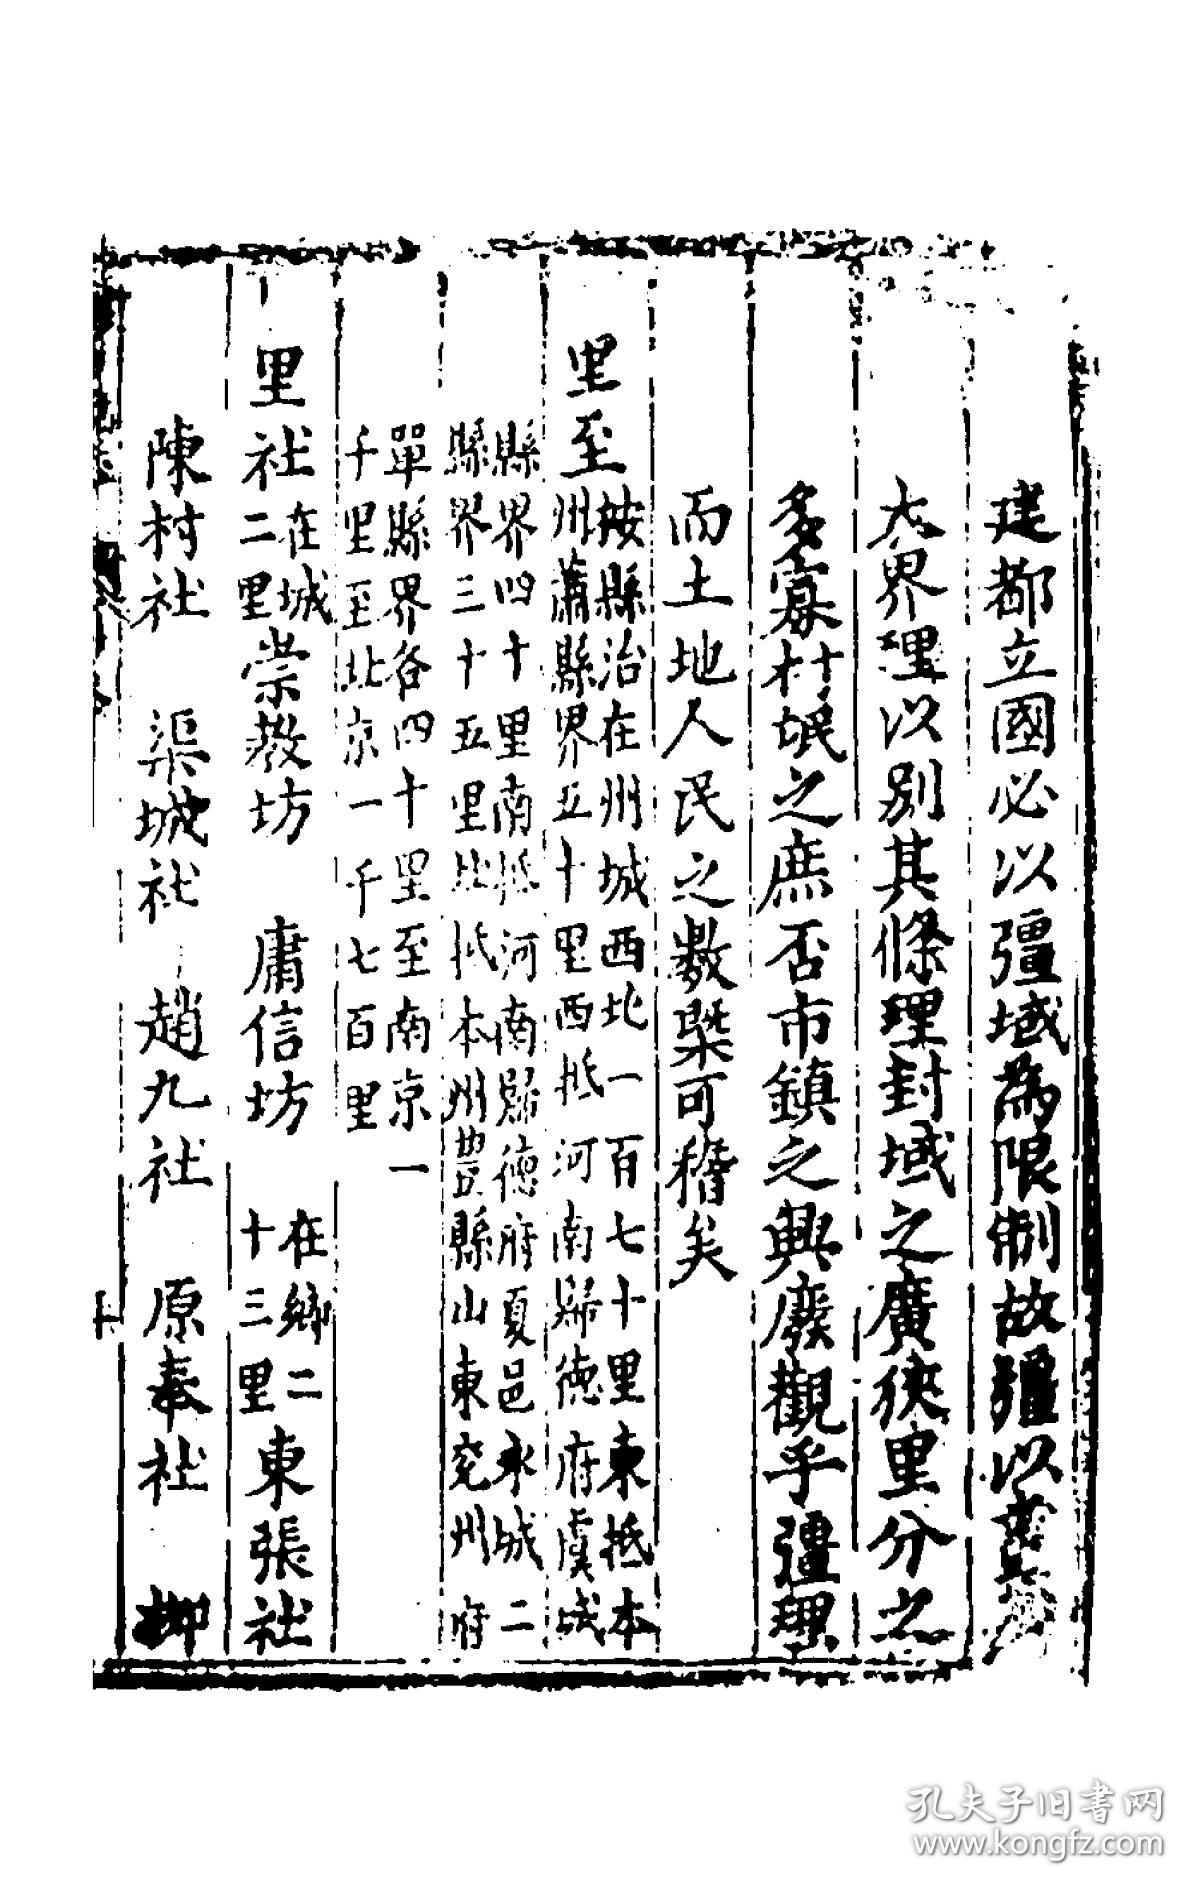 建都立國必以疆域為限制故疆以
大界理以別其條理封域之廣狹里分之
多寡村氓之庶否市鎮之興廢觀乎疆理
而土地人民之數槩可稽矣
里至按縣治在州城西北一百七十里東抵本
州蕭縣界五十里西抵河南歸德府虞城
縣界四十里南抵河南歸德府夏邑永城二
縣界三十五里北抵本州豊縣山東兖州府
單縣界各四十里至南京一
千里至北京一千七百里
里社在城二里崇教坊 庸信坊 在鄉二十三里東張社
陳村社 渠城社 趙九社 原奉社 柳
孔夫子旧書网
www.kongfz.com